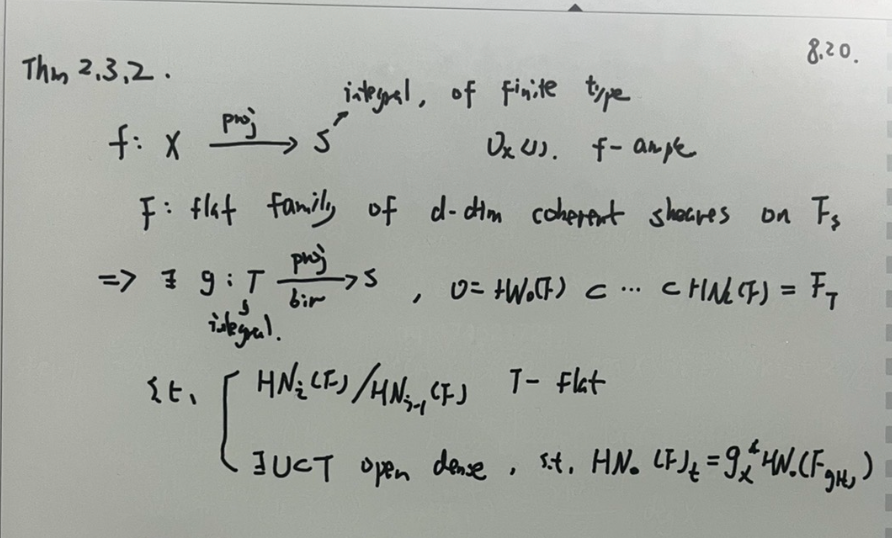 8.20.
Thm 2.3.2.
integral, of finite type
f: X proj ⟶ S O_X(1). f-ample
F: flat family of d-dim coherent sheaves on F_s
=> ∃ g: T proj bir ⟶ S, 0 = HN_0(F) ⊂ ⋯ ⊂ HN_l(F) = F_T
integral.
s.t. { HN_i(F)/HN_{i-1}(F) T-flat
∃U⊂T open dense, s.t. HN_•(F)_t = g_X^* HN_•(F_{g(t)})